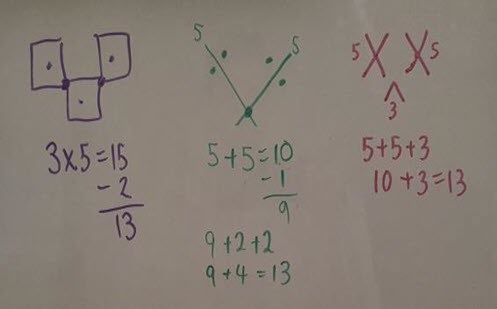 3x5=15
-2
13
5 5
5+5=10
-1
9
9+2+2
9+4=13
5 5
3
5+5+3
10+3=13